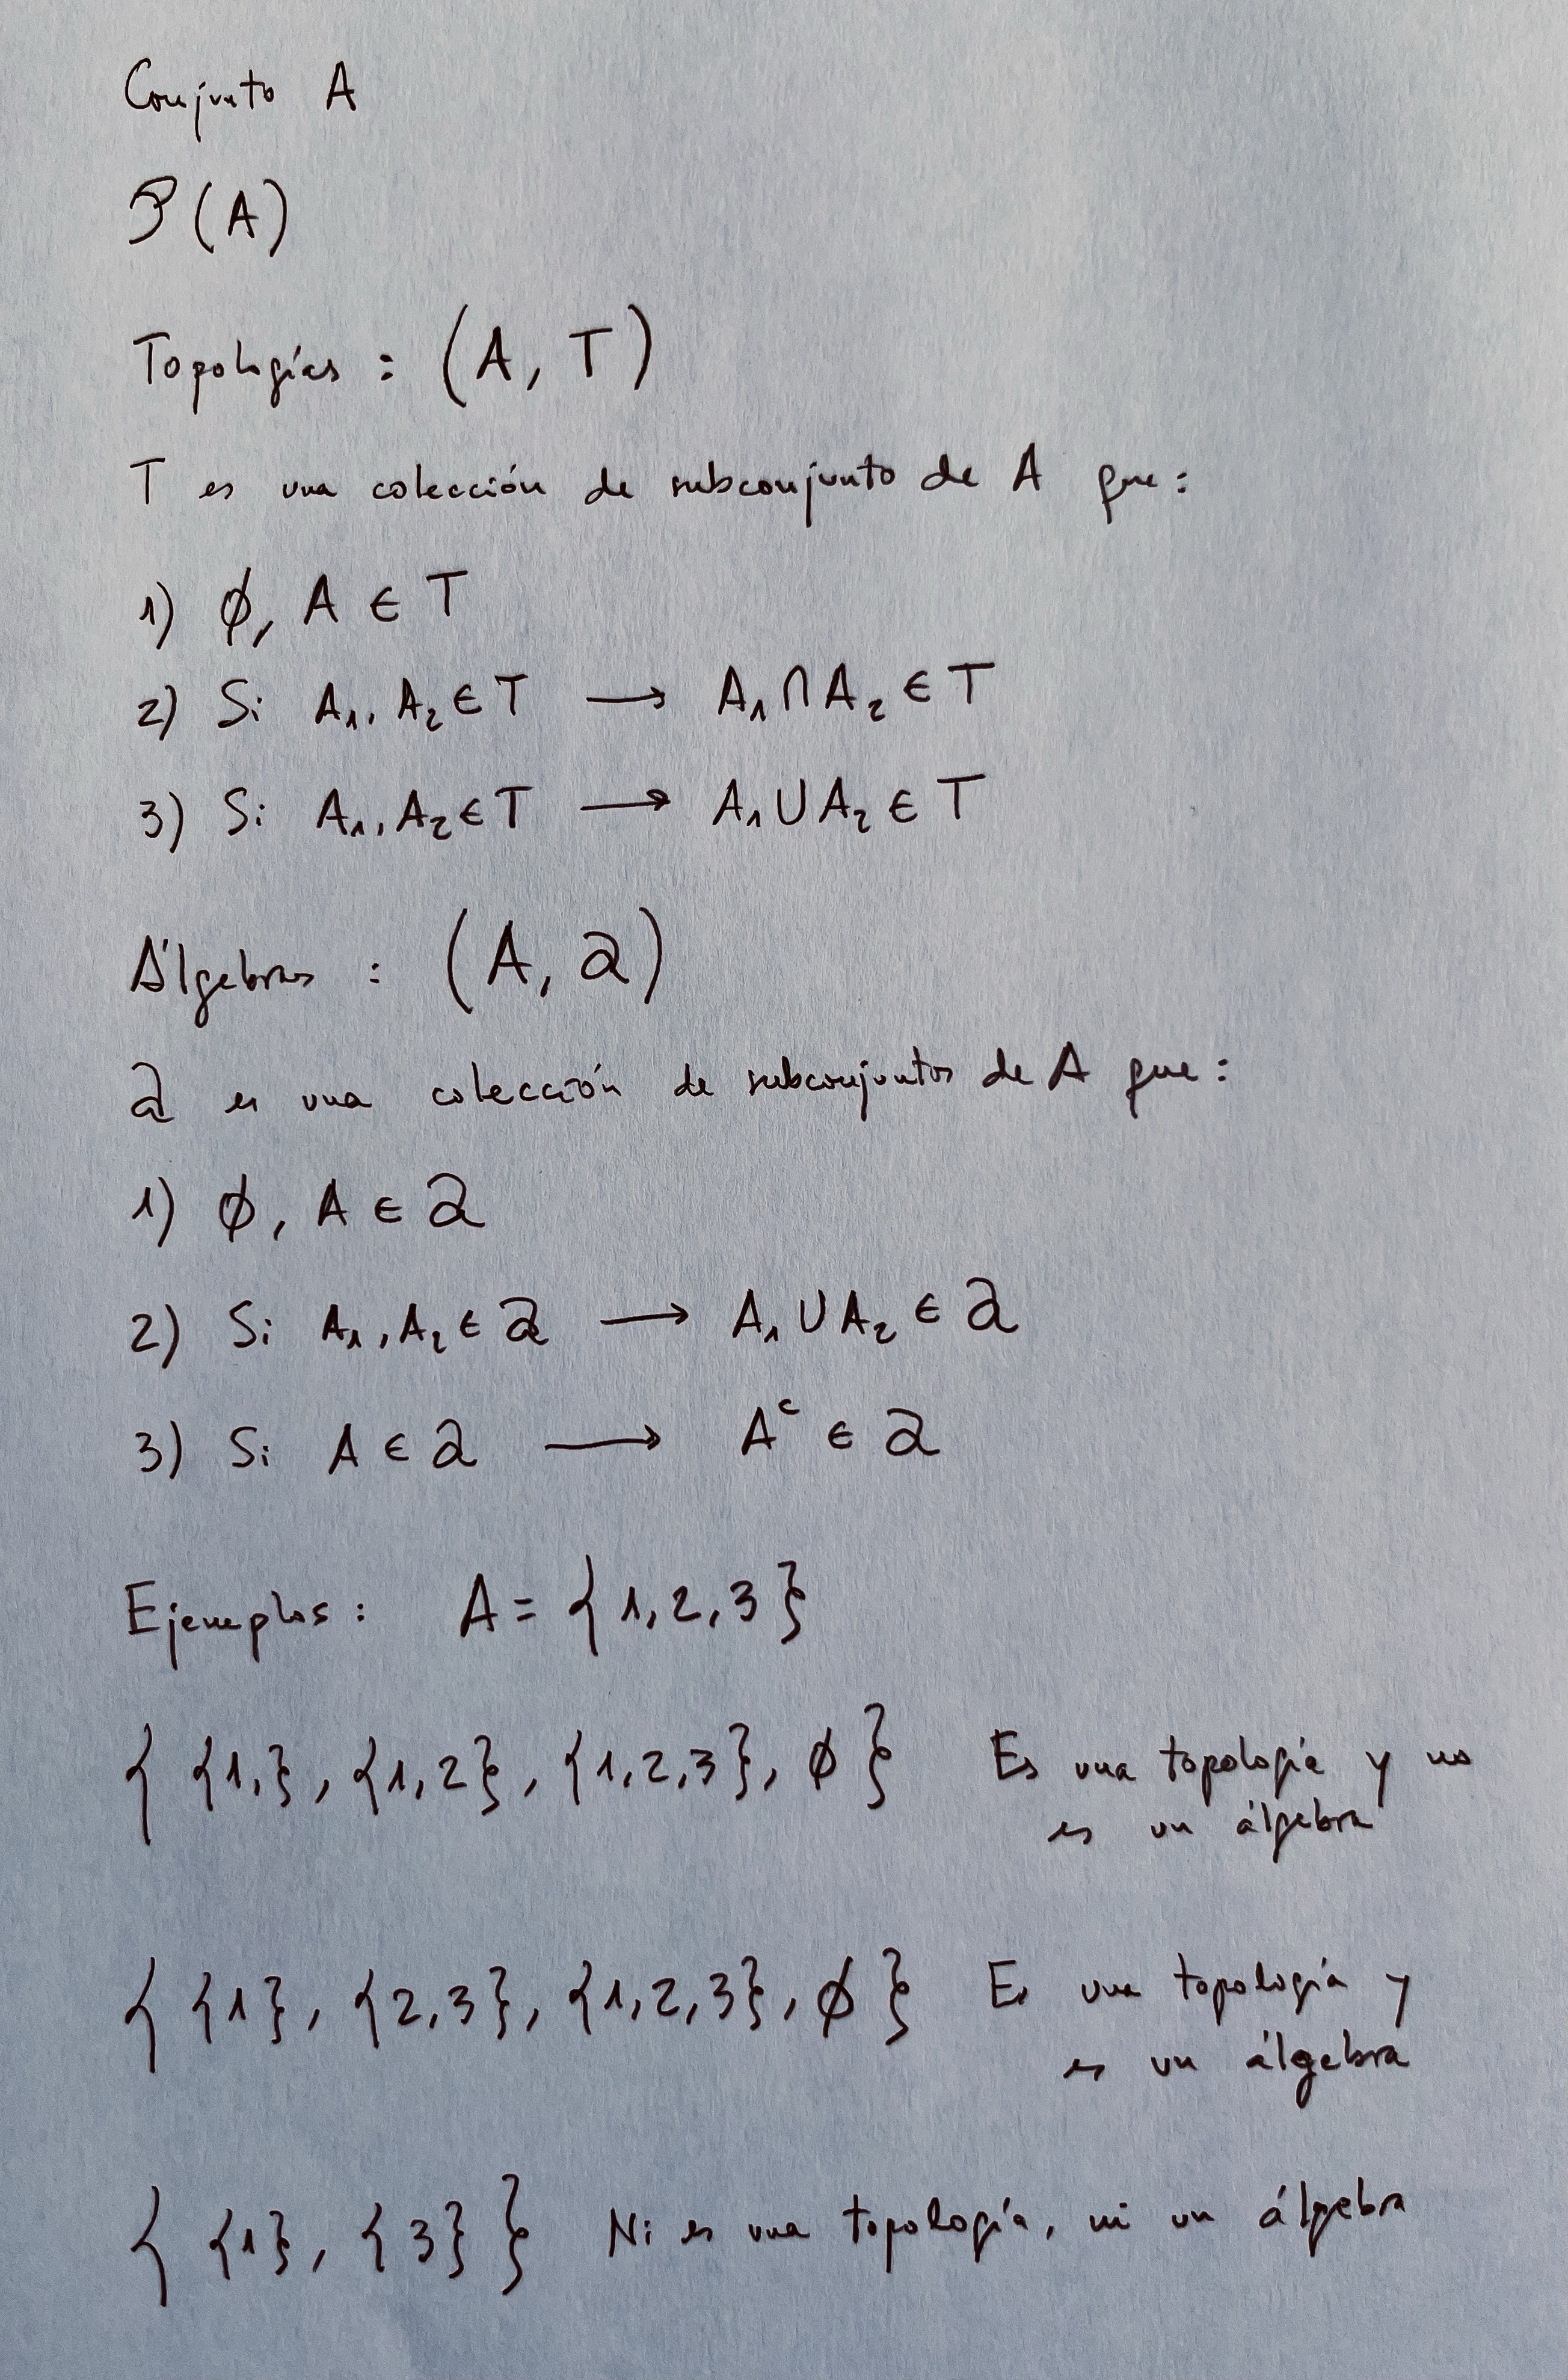 Conjunto A
P(A)
Topologías : (A, T)
T es una colección de subconjunto de A que:
1) ∅, A ∈ T
2) Si A₁, A₂ ∈ T ⟶ A₁ ∩ A₂ ∈ T
3) Si A₁, A₂ ∈ T ⟶ A₁ ∪ A₂ ∈ T
Álgebras : (A, a)
a es una colección de subconjuntos de A que:
1) ∅, A ∈ a
2) Si A₁, A₂ ∈ a ⟶ A₁ ∪ A₂ ∈ a
3) Si A ∈ a ⟶ Aᶜ ∈ a
Ejemplos: A = {1, 2, 3}
{ {1,}, {1, 2}, {1, 2, 3}, ∅ } Es una topología y no
es un álgebra
{ {1}, {2, 3}, {1, 2, 3}, ∅ } Es una topología y
es un álgebra
{ {1}, {3} } Ni es una topología, ni un álgebra